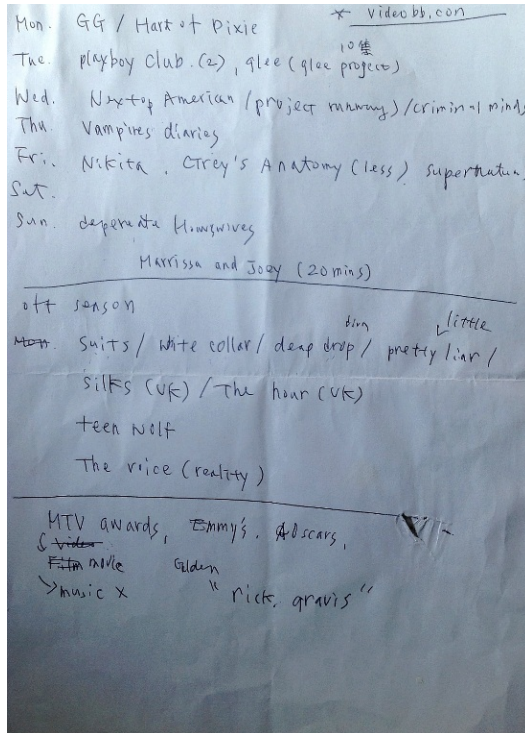 * videobb.com
Mon. GG / Hart of Dixie
10集
Tue. playboy club (2), glee (glee project)
Wed. Nextop American / project runway) / criminal minds
Thu Vampires diaries
Fri. Nikita, Grey's Anatomy (less), supernatural
Sat.
Sun. deperate Housewives
Marrissa and Joey (20 mins)
off season
diva little
Mon. Suits / white collar / deap drop / pretty liar /
silks (UK) / The hour (UK)
teen wolf
The voice (reality)
MTV awards, Emmy's, Oscars,
video
Film movie Golden
music x "rick, gravis"